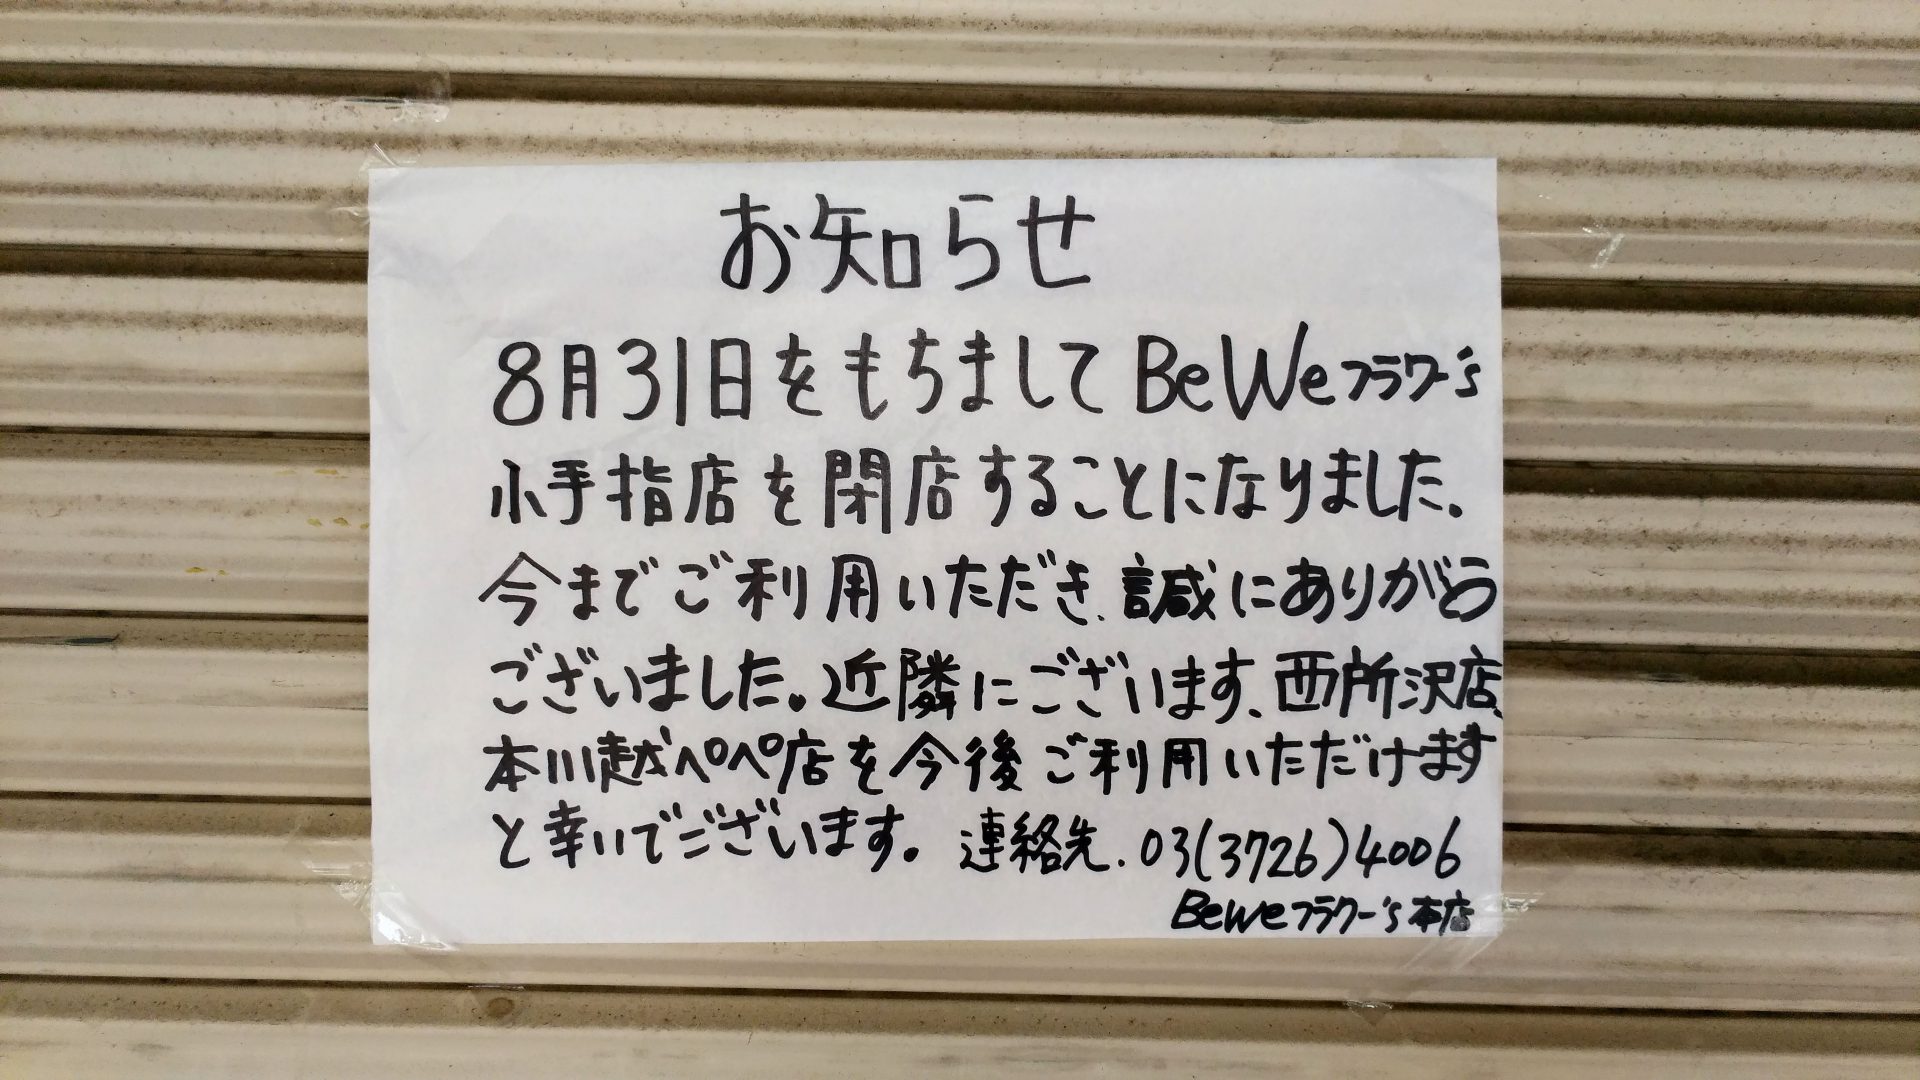 お知らせ
8月31日をもちましてBeWeフラワー's
小手指店を閉店することになりました。
今までご利用いただき、誠にありがとう
ございました。近隣にございます、西所沢店、
本川越ペペ店を今後ご利用いただけます
と幸いでございます。連絡先.03(3726)4006
BeWeフラワー's本店